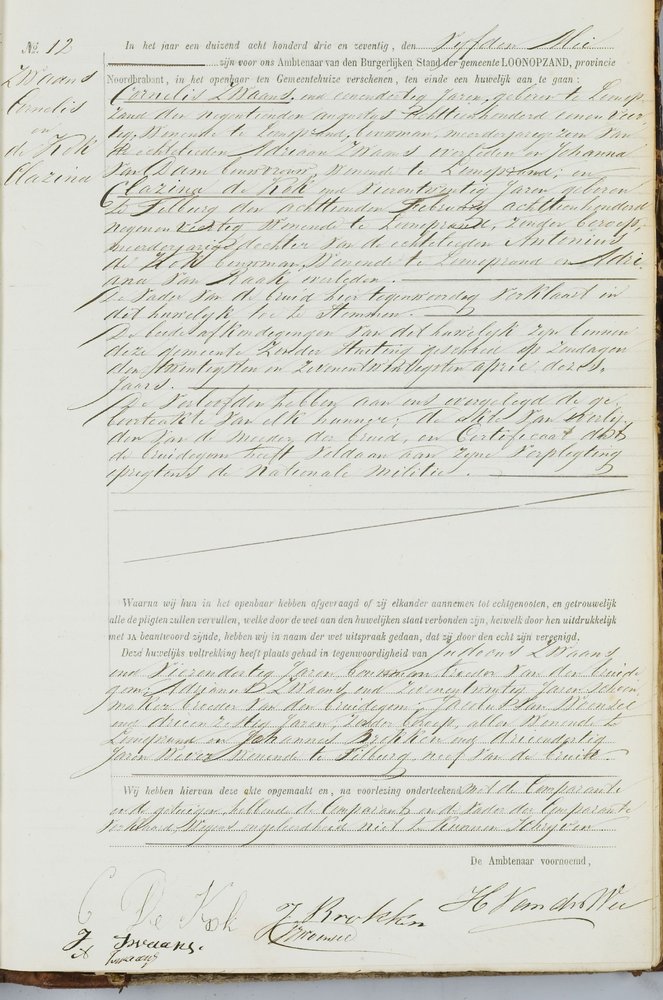 No. 12
Zwaans
Cornelis
en
de Kok
Clazina
In het jaar een duizend acht honderd drie en zeventig, den vyfden Mei
zijn voor ons Ambtenaar van den Burgerlijken Stand der gemeente LOONOPZAND, provincie
Noordbrabant, in het openbaar ten Gemeentehuize verschenen, ten einde een huwelijk aan te gaan:
Cornelis Zwaans, oud eenendertig Jaren, geboren te Loonop
Zand den negentienden augustus achttienhonderd eenen veer
tig, Wonende te Loonopzand, bouwman, meerderjarigezoon van
de echtelieden Adriaan Zwaans overleden en Johanna
Van Dam bouwvrouw Wonende te Loonopzand; en
Clazina de Kok oud vierentwintig Jaren geboren
te Tilburg den achttienden February achttienhonderd
negenenveertig Wonende te Loonopzand, zonder beroep,
meerderjarige dochter van de echtelieden Antonius
de Kok bouwman, Wonende te Loonopzand en Adri
ana van Raak, overleden.
De Vader van de bruid hier tegenwoordig verklaart in
dit huwelijk toe te stemmen.
De beide afkondigingen van dit huwelijk zyn binnen
deze gemeente zonder stuiting geschied op Zondagen
den twintigsten en zevenentwintigsten april dezes
Jaars.
De Verloofden hebben aan ons overgelegd de ge
boorteakte van elk hunner, de akte van overly
den van de moeder der bruid, en Certificaat dat
de bruidegom heeft voldaan aan zyne verpligting
opzigtens de Nationale Militie.
Waarna wij hun in het openbaar hebben afgevraagd of zij elkander aannemen tot echtgenooten, en getrouwelijk
alle de pligten zullen vervullen, welke door de wet aan den huwelijken staat verbonden zijn, hetwelk door hen uitdrukkelijk
met JA beantwoord zijnde, hebben wij in naam der wet uitspraak gedaan, dat zij door den echt zijn vereenigd.
Deze huwelijks voltrekking heeft plaats gehad in tegenwoordigheid van Judocus Zwaans
oud vierendertig Jaren bouwman broeder van den bruide
gom; Adrianus Zwaans, oud zevenentwintig Jaren schoen
maker broeder van den bruidegom; Jacobus van
oud drieenzestig Jaren zonder beroep, allen Wonende te
Loonopzand en Johannes Brokken oud drieendertig
Jaren Wever Wonende te Tilburg neef van de bruid.
Wij hebben hiervan deze akte opgemaakt en, na voorlezing onderteekend met de Comparante
en de getuigen, hebbende de Comparant en de Vader der Comparante
verklaard wegens ongeleerdheid niet te kunnen schryven
De Ambtenaar voornoemd,
C De Kok
J. Brokken
H Van der Wee
J. Zwaans.
A Zwaans